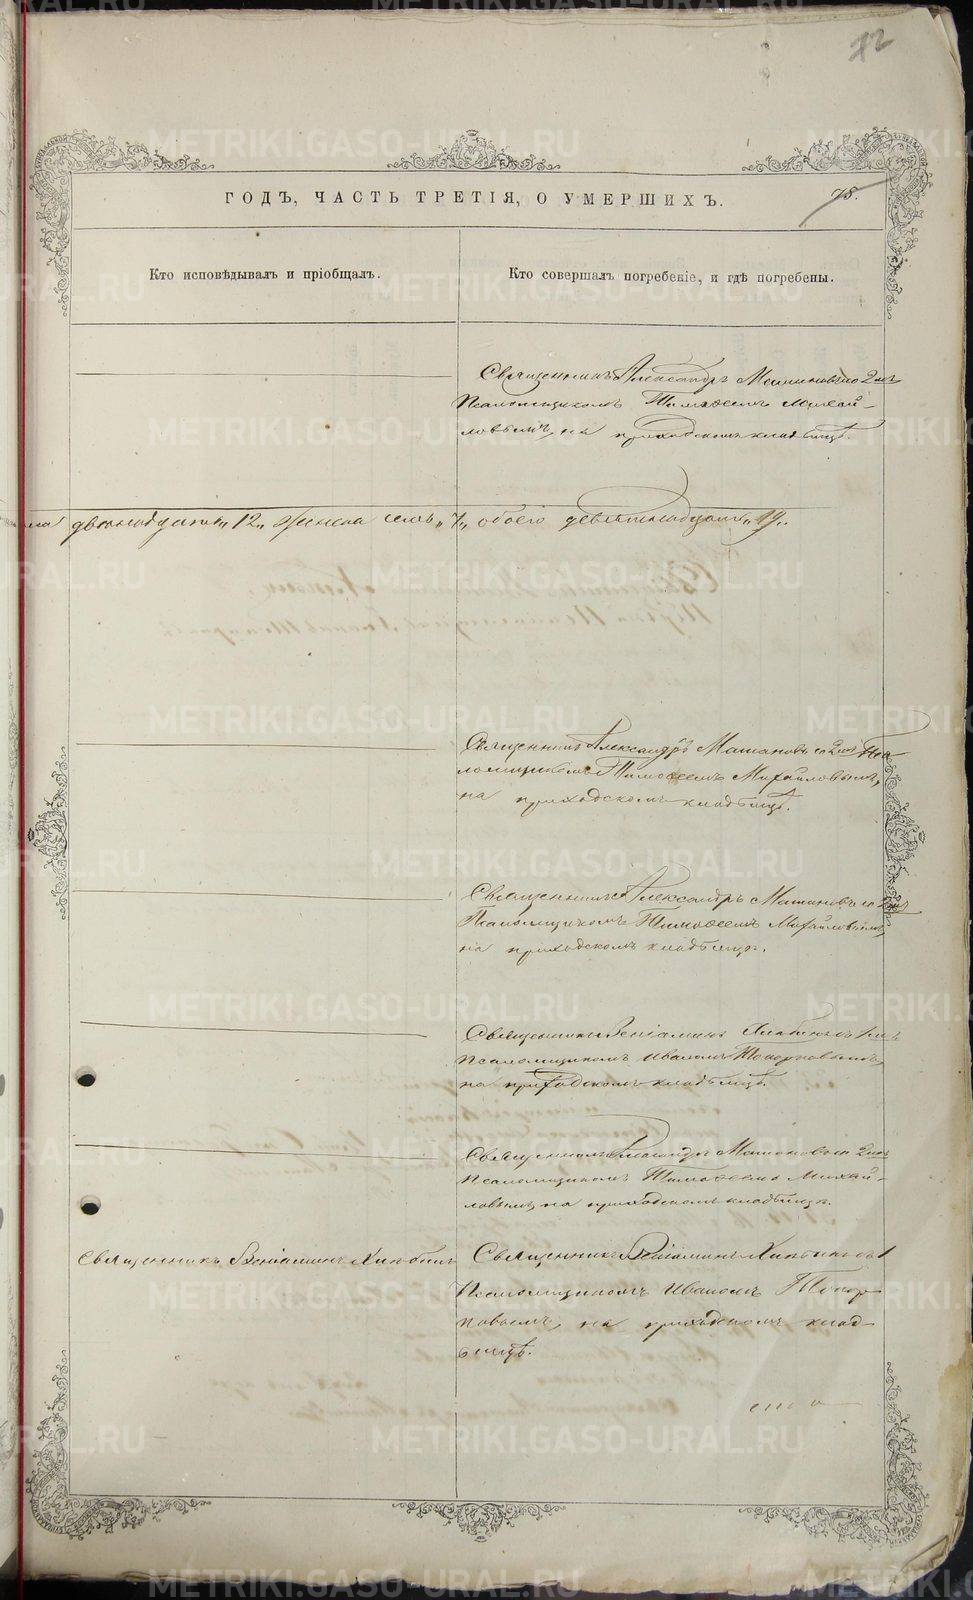 72
ГОДЪ, ЧАСТЬ ТРЕТІЯ, О УМЕРШИХЪ.
75.
Кто исповѣдывалъ и пріобщалъ.
Кто совершалъ погребеніе, и гдѣ погребены.
Священникъ Александръ Машановъ со 2мъ
Псаломщикомъ Тимоѳеемъ Михай-
ловымъ, на приходскомъ кладбищѣ.
двенадцать „12„ Женска семь „7„ обоего девятнадцать „19„
Священникъ Александръ Машановъ со 2мъ Пса-
ломщикомъ Тимоѳеемъ Михайловымъ,
на приходскомъ кладбищѣ.
Священникъ Александръ Машановъ со 2мъ
Псаломщикомъ Тимоѳеемъ Михайловымъ,
на приходскомъ кладбищѣ.
Священникъ Веніаминъ
Псаломщикомъ Иваномъ Топорковымъ,
на приходскомъ кладбищѣ.
Священникъ Александръ Машановъ со 2мъ
Псаломщикомъ Тимоѳеемъ Михай-
ловымъ, на приходскомъ кладбищѣ.
Священникъ Веніаминъ
Священникъ Веніаминъ
Псаломщикомъ Иваномъ Топор-
ковымъ, на приходскомъ клад-
бищѣ.
METRIKI.GASO-URAL.RU